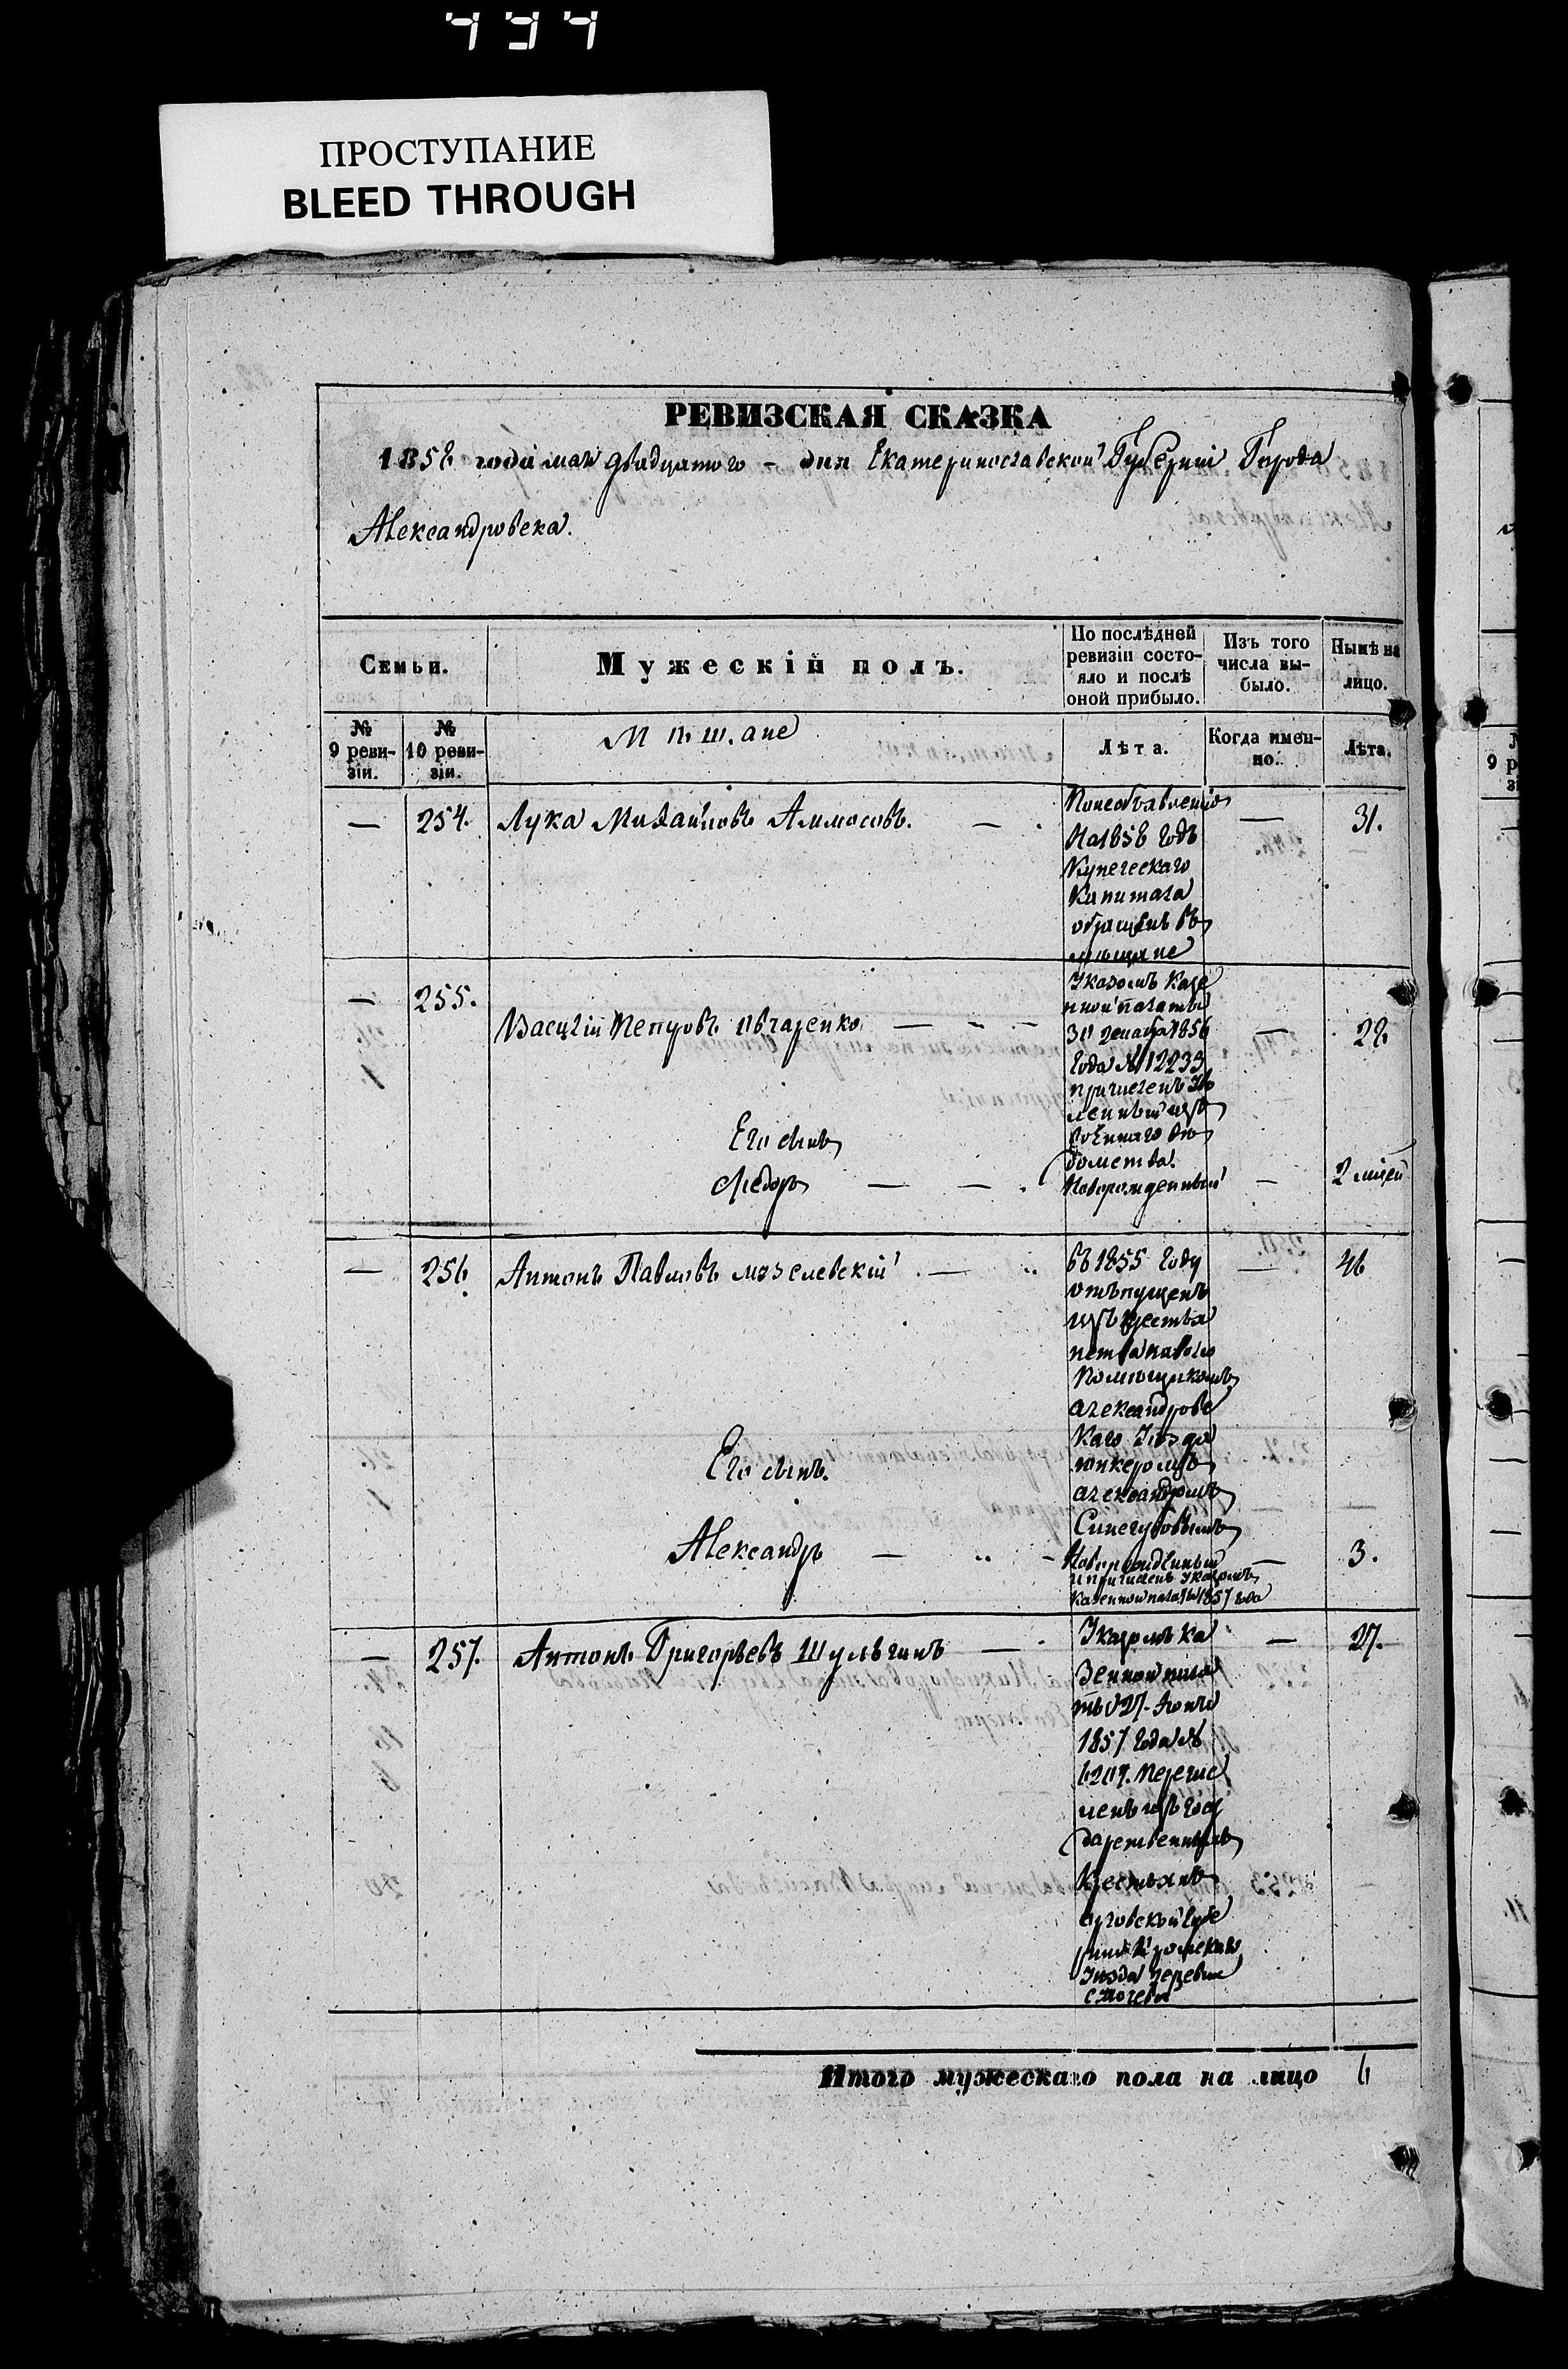 434
ПРОСТУПАНИЕ
BLEED THROUGH
РЕВИЗСКАЯ СКАЗКА
1858 года мая двадцатого - дня Екатеринославской Губерніи Города
Александровска.
Семьи.
Мужескій полъ.
По послѣдней ревизіи состо-
яло и послѣ
оной прибыло.
Изъ того
числа вы-
было.
Нынѣ на
лицо.
№
9 реви-
зіи.
№
10 реви-
зіи.
Мѣщане
Лѣта.
Когда имен-
но.
Лѣта.
— 254. Лука Михайловъ Аммосовъ. — — 31.
По необъявленію
на 1858 годъ
Купеческаго
Капитала
обращенъ въ
мѣщане
— 255. Василій Петровъ Овчаренко — — 28.
Указомъ Казе
нной палаты
30 декабря 1856
года № 12233
причисленъ
изъ
военнаго вѣ
домства.
Его сынъ
Ѳедоръ — — Новорожденный — 2 мѣсяц
— 256. Антонъ Павловъ — — 46
въ 1855 году
отпущенъ
изъ крестья
нства на волю
Помѣщикомъ
александровс
каго Уѣзда
юнкеромъ
александромъ
Синегубовымъ
Его сынъ.
Александръ — — Новорожденный — 3.
и причисленъ Указомъ
Казенной палаты 1857 года
— 257. Антонъ Григорьевъ Шульгинъ — — 27.
Указомъ ка
зенной пала
ты 27 Іюня
1857 года №
6207. Перечис
ленъ изъ госу
дарственныхъ
Крестьянъ
орловской губе
рніи Кромскаго
Уѣзда деревни
Итого мужескаго пола на лицо 6